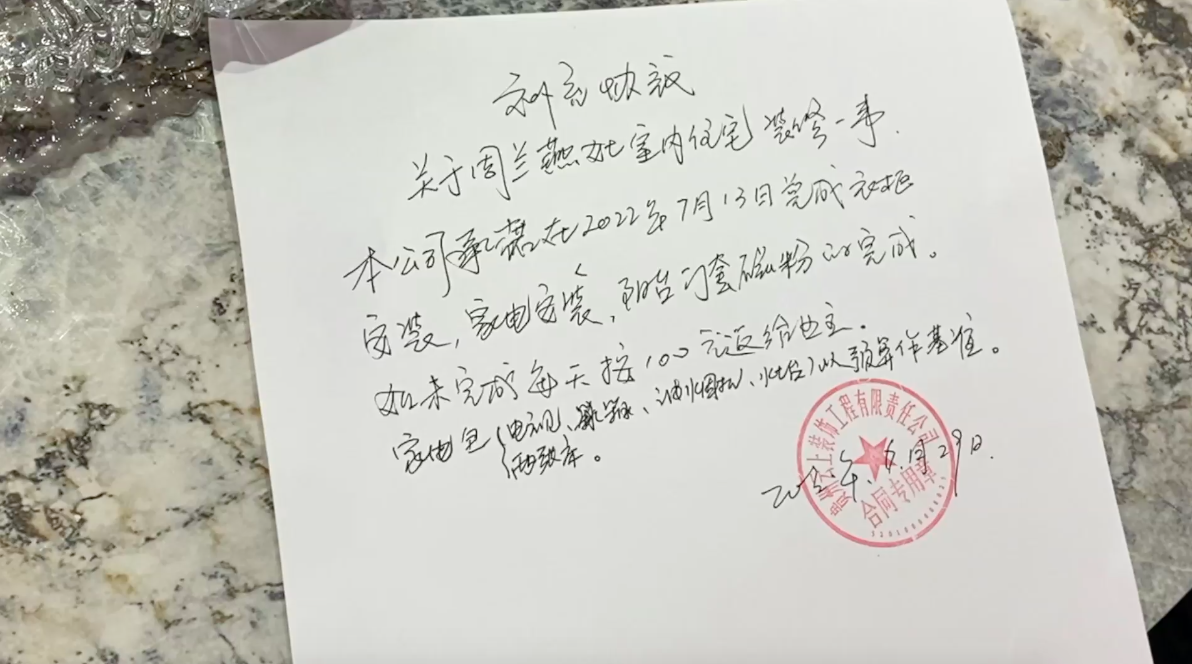 补充协议
关于周兰燕女士室内住宅装修一事.
本公司承诺在2022年7月13日完成衣柜
安装,家电安装、阳台门套磁粉 完成。
如未完成每天按100元返给业主.
家电包(电视、、油烟机、灶台)以预算作基准。
两联库。
2022年.6.月29日.
上装饰工程有限责任公司
合同专用章